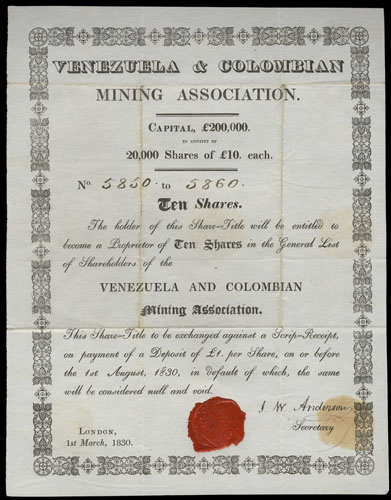 VENEZUELA & COLOMBIAN
MINING ASSOCIATION.
CAPITAL, £200,000.
TO CONSIST OF
20,000 Shares of £10. each.
No. 5850. to 5860.
Ten Shares.
The holder of this Share=Title will be entitled to
become a Proprietor of Ten Shares in the General List
of Shareholders of the
VENEZUELA AND COLOMBIAN
Mining Association.
This Share=Title to be exchanged against a Scrip=Receipt,
on payment of a Deposit of £1. per Share, on or before
the 1st August, 1830, in default of which, the same
will be considered null and void.
J. W. Anderson
Secretary
LONDON,
1st March, 1830.